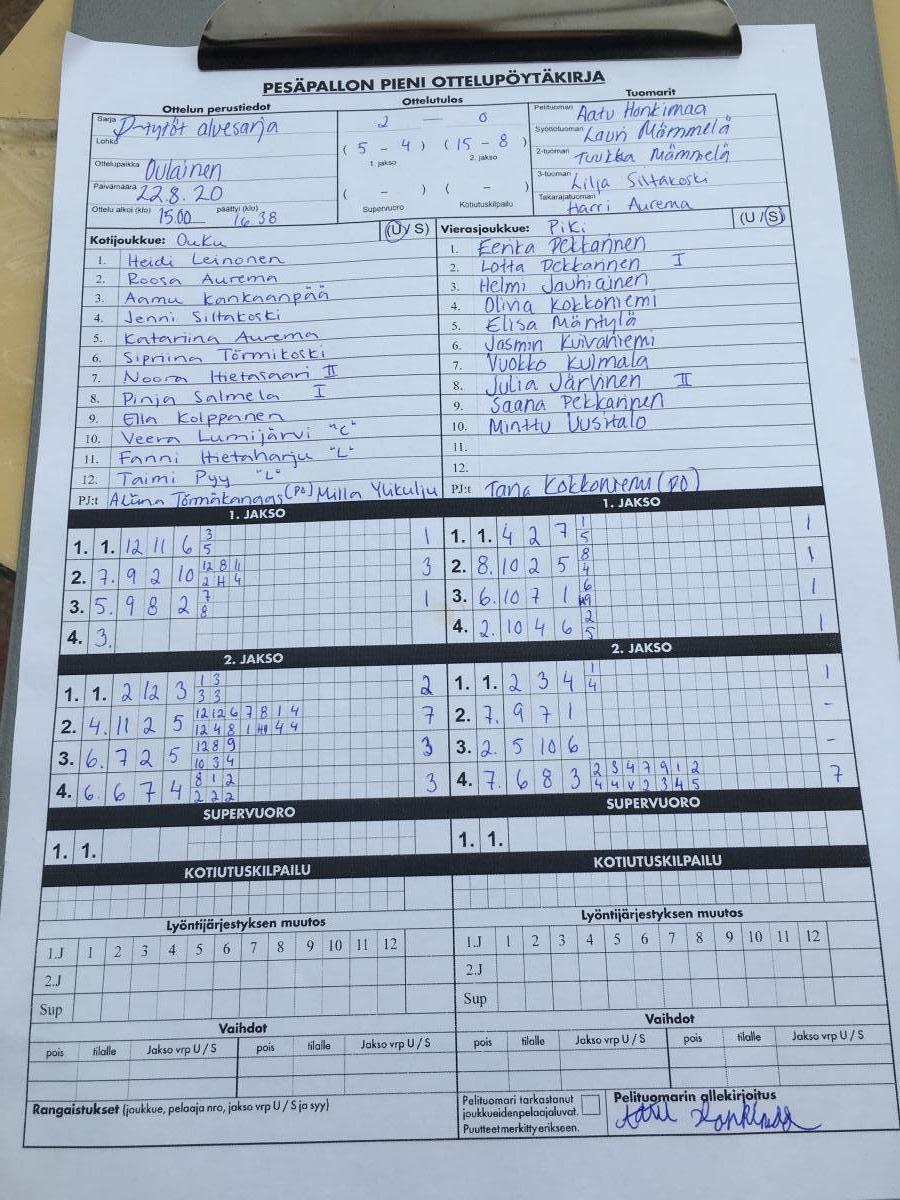 PESÄPALLON PIENI OTTELUPÖYTÄKIRJA
Ottelun perustiedot
Ottelutulos
Tuomarit
Sarja D-tytöt aluesarja
Lohko
Ottelupaikka Oulainen
Päivämäärä 22.8.20
Ottelu alkoi (klo) 15.00 päättyi (klo) 16.38
2 — 0
( 5 - 4 ) ( 15 - 8 )
1. jakso 2. jakso
( - ) ( - )
Supervuoro Kotiutuskilpailu
Pelituomari Aatu Honkimaa
Syöttötuomari Lauri Mämmelä
2-tuoman Tuukka Mämmelä
3-tuoman Lilja Siltakoski
Takarajatuoman Harri Aurema
Kotijoukkue: Ouku (U/S)
1. Heidi Leinonen
2. Roosa Aurema
3. Aamu Kankaanpää
4. Jenni Siltakoski
5. Katariina Aurema
6. Sipriina Törmikoski
7. Noora Hietasaari II
8. Pinja Salmela I
9. Ella Kolppanen
10. Veera Lumijärvi "C"
11. Fanni Hietaharju "L"
12. Taimi Pyy "L"
PJ:t Aliina Törmäkangas (PO) Milla Ylikulju
Vierasjoukkue: PiKi (U/S)
1. Eerika Pekkarinen
2. Lotta Pekkarinen I
3. Helmi Jauhiainen
4. Olivia Kokkoniemi
5. Elisa Mäntylä
6. Jasmin Kuivaniemi
7. Vuokko Kulmala
8. Julia Järvinen II
9. Saana Pekkarinen
10. Minttu Uusitalo
11.
12.
PJ:t Tana Kokkoniemi (PO)
1. JAKSO
1. 1. 12 11 6 3 1
5
2. 7. 9 2 10 12 8 11 3
2 H 4
3. 5. 9 8 2 7 1
8
4. 3.
1. JAKSO
1. 1. 4 2 7 1 1
5
2. 8. 10 2 5 8 1
4
3. 6. 10 7 1 6 1
9
4. 2. 10 4 6 2 1
5
2. JAKSO
1. 1. 2 12 3 1 3 2
3 3
2. 4. 11 2 5 12 12 6 7 8 1 4 7
12 4 8 1 4 4
3. 6. 7 2 5 12 8 9 3
10 3 4
4. 6. 6 7 4 8 1 2 3
2 2 2
2. JAKSO
1. 1. 2 3 4 1 1
4
2. 7. 9 7 1 -
3. 2. 5 10 6 -
4. 7. 6 8 3 2 3 4 7 9 1 2 7
4 4 V 2 3 4 5
SUPERVUORO
1. 1.
SUPERVUORO
1. 1.
KOTIUTUSKILPAILU
KOTIUTUSKILPAILU
Lyöntijärjestyksen muutos
1.J 1 2 3 4 5 6 7 8 9 10 11 12
2.J
Sup
Lyöntijärjestyksen muutos
1.J 1 2 3 4 5 6 7 8 9 10 11 12
2.J
Sup
Vaihdot
pois tilalle Jakso vrp U / S pois tilalle Jakso vrp U / S
Vaihdot
pois tilalle Jakso vrp U / S pois tilalle Jakso vrp U / S
Rangaistukset (joukkue, pelaaja nro, jakso vrp U / S ja syy)
Pelituomari tarkastanut
joukkueidenpelaajaluvat.
Puutteet merkitty erikseen.
Pelituomarin allekirjoitus
Aatu Honkimaa